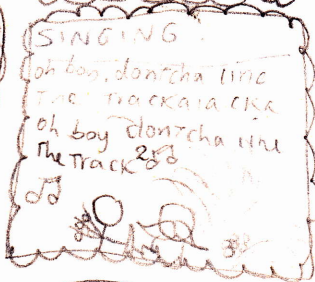 SINGING.
oh boy, dontcha line
The trackalacka
oh boy dontcha line
The Track